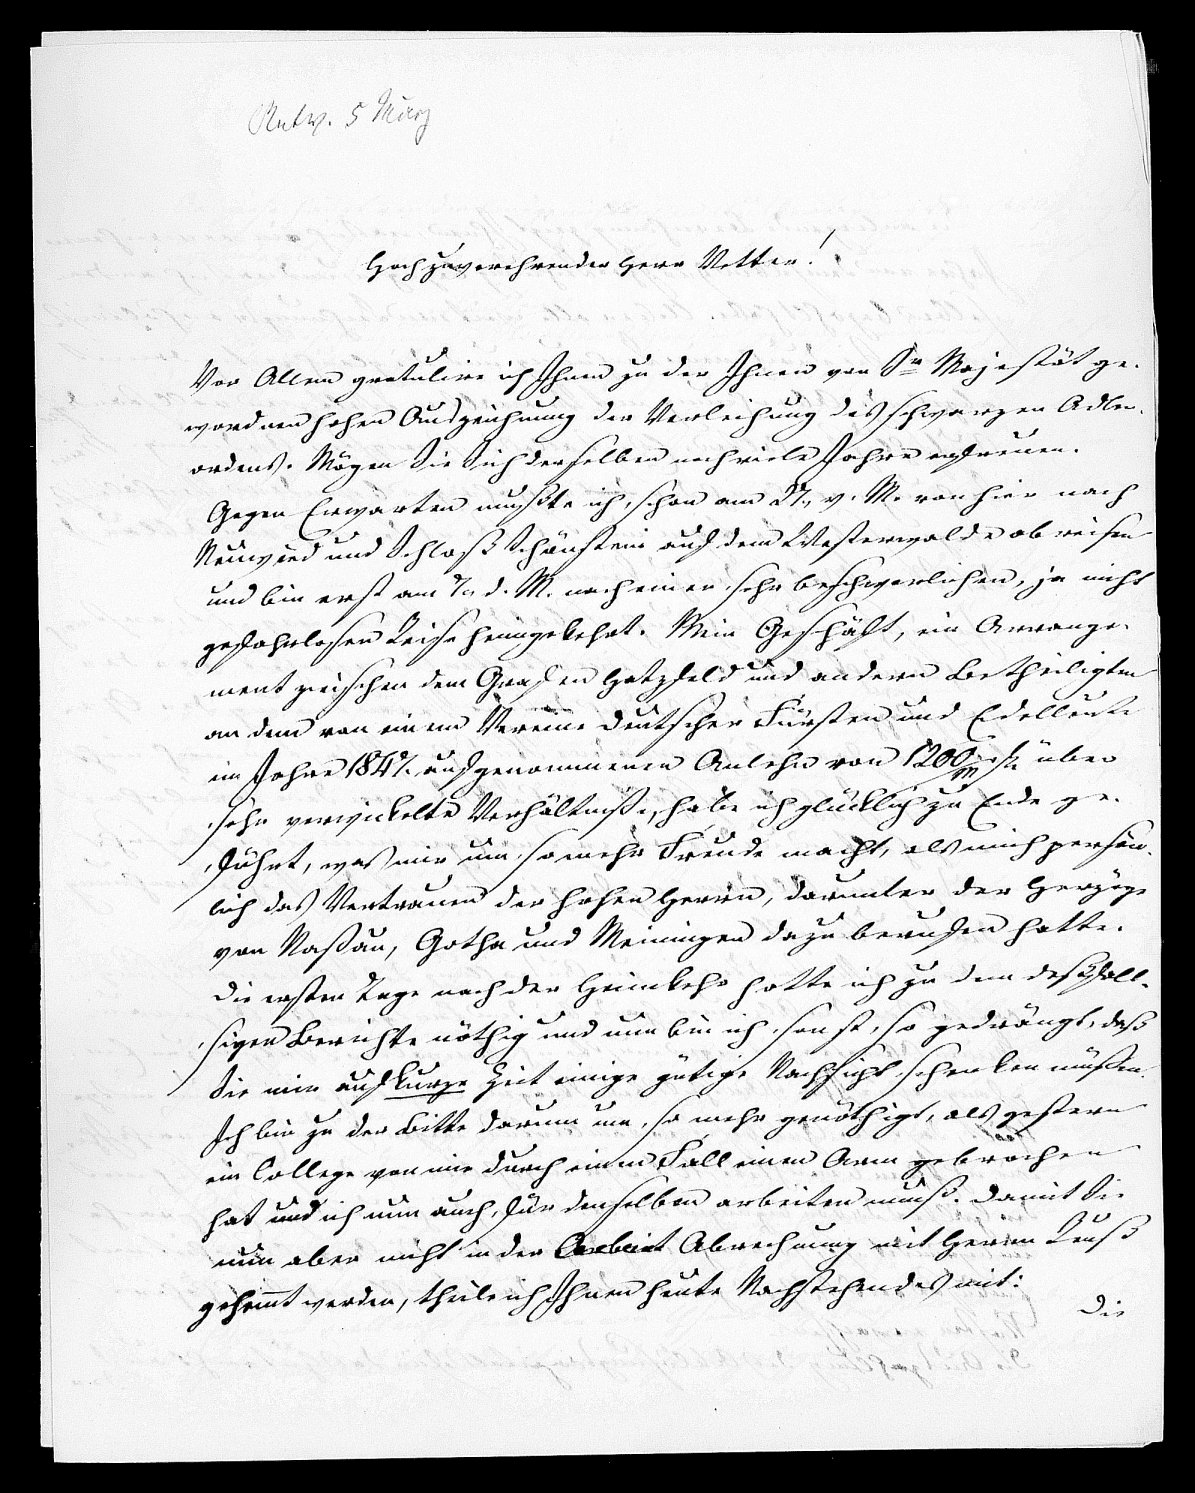 Antw. 5 März
Hochzuverehrender Herr Vetter!
Vor Allem gratulire ich Ihnen zu der Ihnen von Sr Majestät ge-
wordnen hohen Auszeichnung der Verleihung des schwarzen Adler-
ordens. Mögen Sie Sich derselben noch viele Jahre erfreuen.
Gegen Erwarten mußte ich schon am 27. v. M. von hier nach
Neuwied und Schloß Schönstein auf dem Westerwalde abreisen
und bin erst am 7. d. M. nach einer sehr beschwerlichen, ja nicht
gefahrlosen Reise heimgekehrt. Mein Geschäft, ein Arrange-
ment zwischen dem Grafen Hatzfeld und andern Betheiligten
an dem von einem Vereine deutscher Fürsten und Edelleute
im Jahre 1847. aufgenommenen Anlehn von 1200/m über
sehr verwickelte Verhältniße, habe ich glücklich zu Ende ge-
führt, was mir um so mehr Freude macht, als mich persön-
lich das Vertrauen der hohen Herrn, darunter der Herzöge
von Naßau, Gotha und Meiningen dazu berufen hatte.
Die ersten Tage nach der Heimkehr hatte ich zu dem desfall-
sigen Berichte nöthig und nun bin ich sonst so gedrängt, daß
Sie mir auf kurze Zeit einige gütige Nachsicht schenken müßen.
Ich bin zu der Bitte darum um so mehr genöthigt, als gestern
ein College von mir durch einen Fall einen Arm gebrochen
hat und ich nun auch für denselben arbeiten muß. Damit Sie
nun aber nicht in der Arbeit Abrechnung mit Herrn Reuß
gehemt werden, theile ich Ihnen heute Nachstehendes mit:
Die